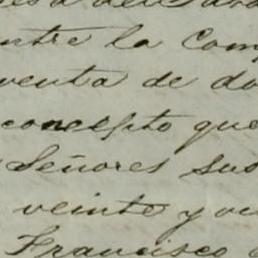 entre la Com
venta de do
concepto que
Señores sus
veinte y
Francisco